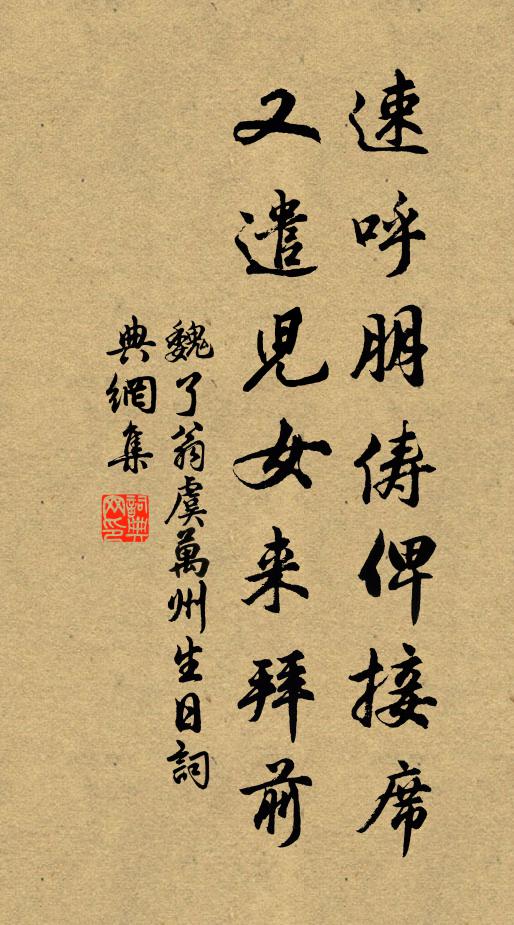 速呼朋儔俾接席
又遣児女来拜前
魏了翁虞萬州生日詞
典網集
詞典网印